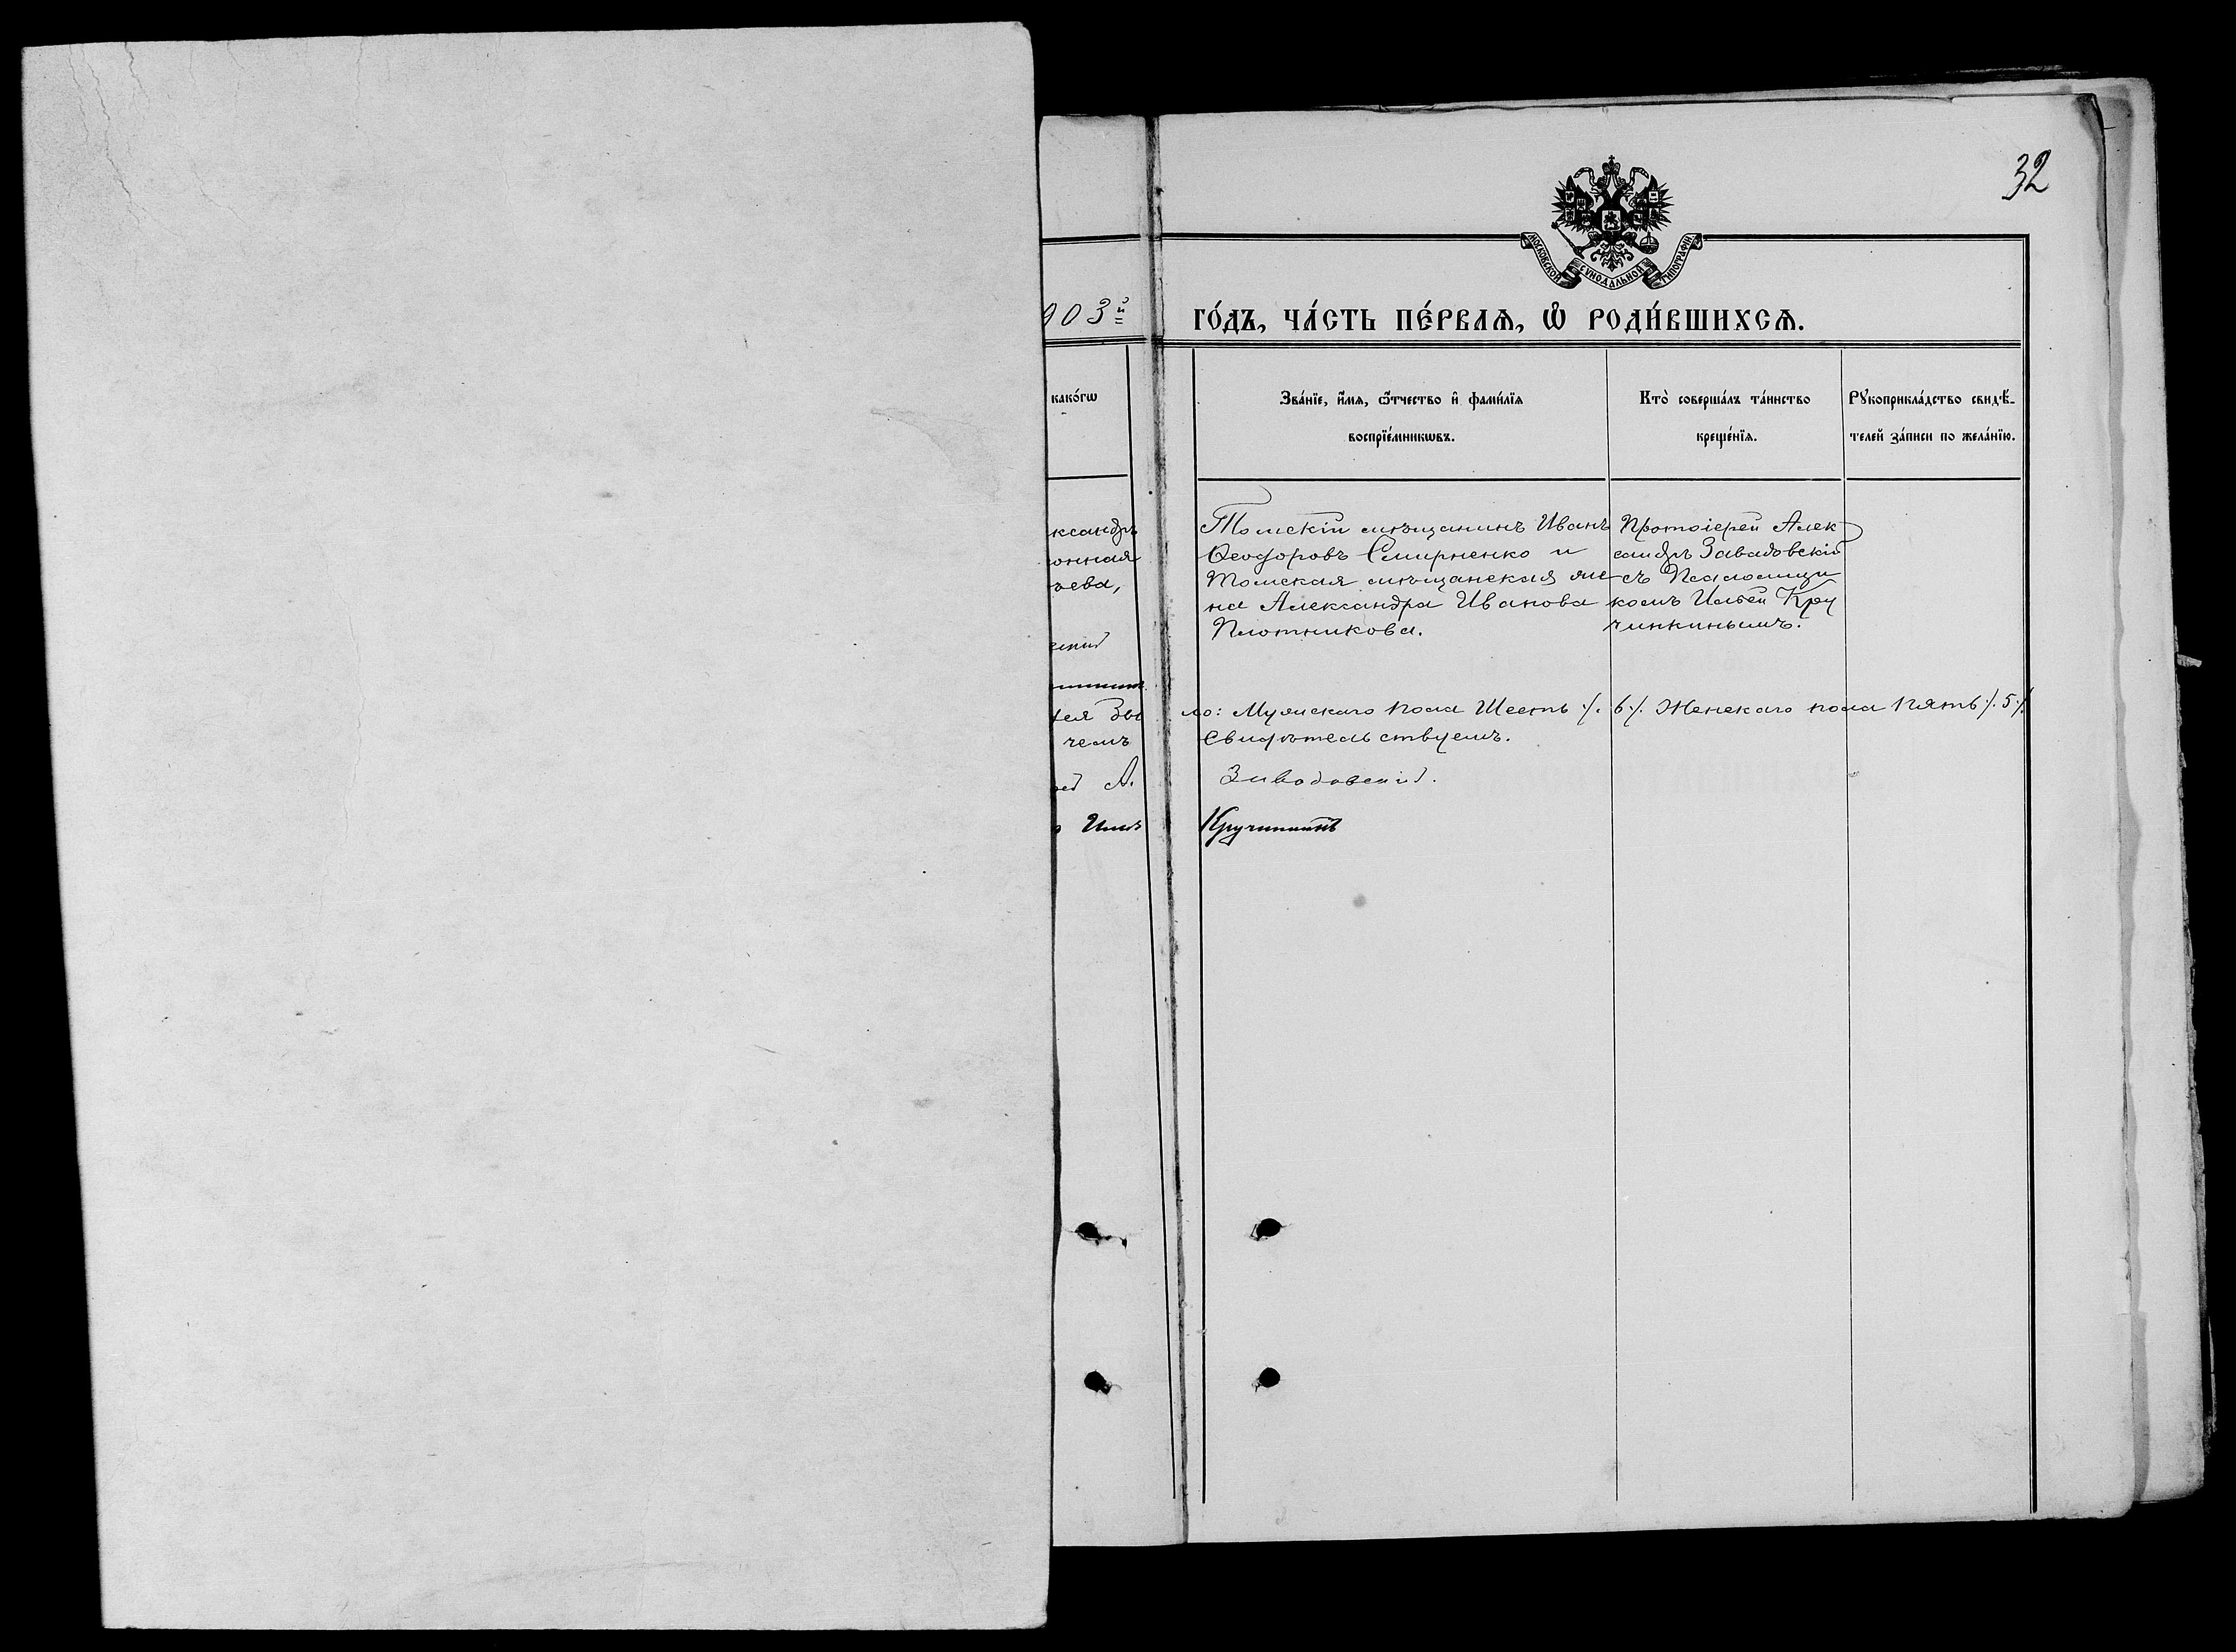 32
МОСКОВСКОЙ СѴНОДАЛЬНОЙ ТИПОГРАФІИ
903й го́дъ, ча́сть пе́рваѧ, ѡ҆ роди́вшихсѧ.
како́гѡ
Зва́нїе, и҆́мѧ, ѻ҆́тчество и҆ фами́лїѧ
воспрїе́мникѡвъ.
Кто̀ соверша́лъ та́инство
креще́нїѧ.
Рꙋкоприкла́дство свидѣ́-
телей за́писи по жела́нїю.
ксандръ
онная
ьева,
Томскій мѣщанинъ Иванъ
Ѳеодоровъ Смирненко и
Томская мѣщанская же
на Александра Иванова
Плотникова.
Протоіерей Алек
сандръ Завадовскій
съ Псаломщи
комъ Ильей Кру
чинкинымъ.
ло: Мужскаго пола Шесть ٪ 6 ٪ Женскаго пола Пять ٪ 5 ٪
чемъ Свидѣтельствуемъ.
ей А. Заводовскій.
Илья Кручинкинъ